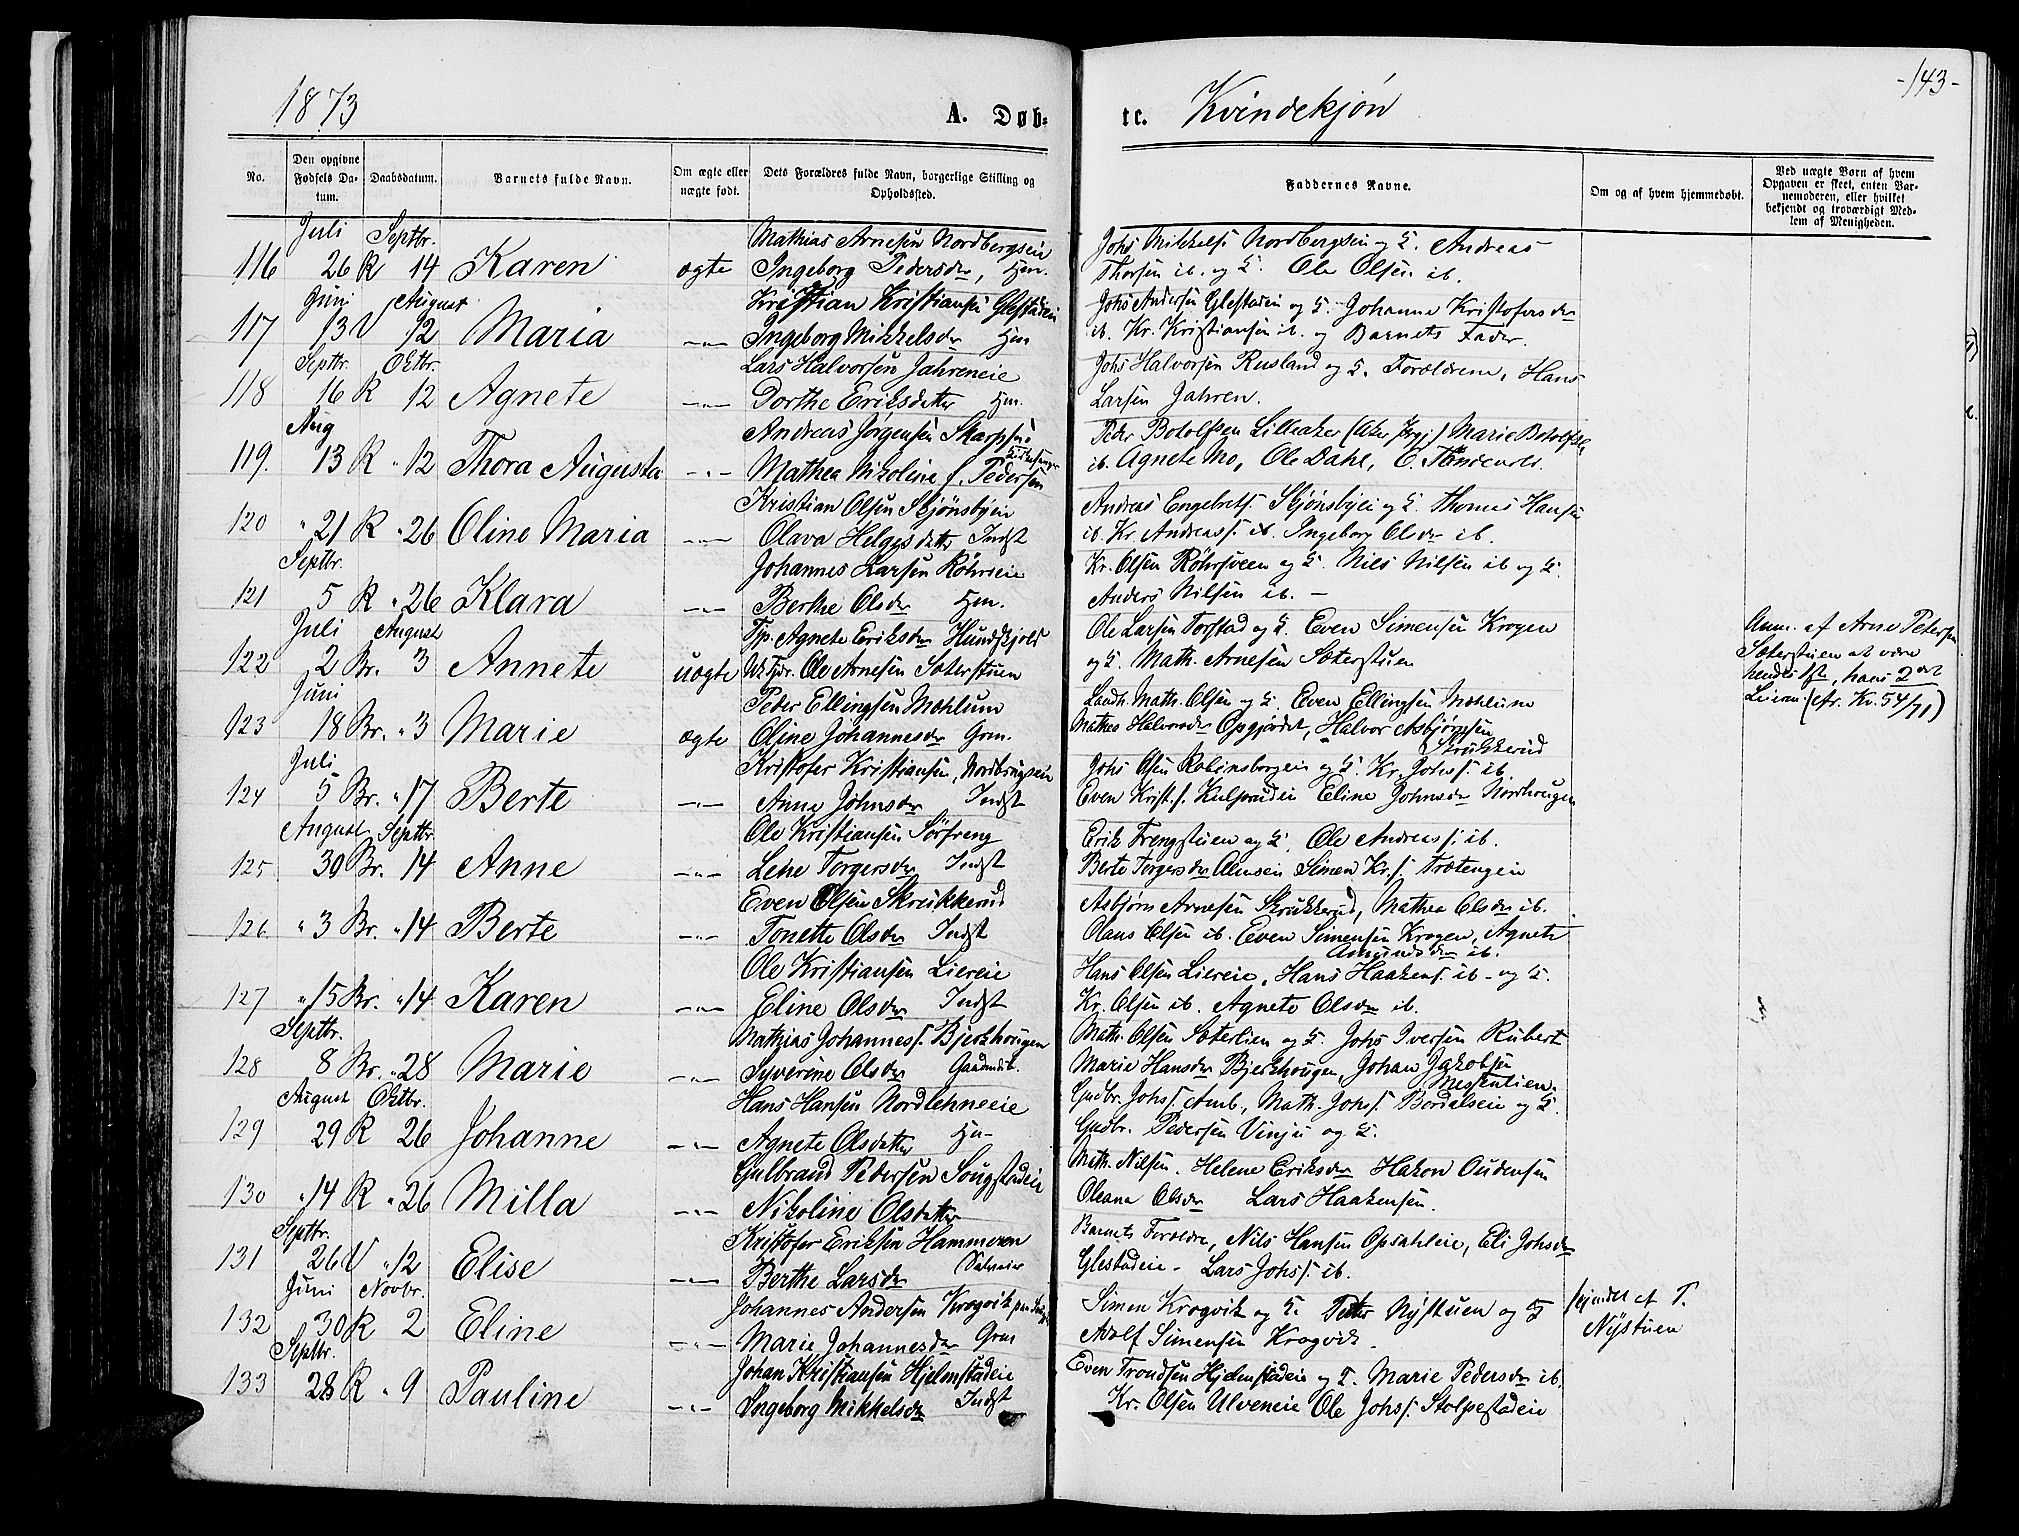 1873
A. Døb-
te. Kvindekjøn
-143-
No.
Den opgivne Fødsels Da-tum.
Daabsdatum.
Barnets fulde Navn.
Om ægte eller nægte født.
Dets Forældres fulde Navn, borgerlige Stilling og Opholdssted.
Faddernes Navne.
Om og af hvem hjemmedøbt.
Ved uægte Børn af hvem Opgaven er skeet, enten Barnemoderen, eller hvilket bekjendt og troværdigt Medlem af Menigheden.
Juli Septbr. Mathias Arnesen Nordbergseie Johs Mikkels. Nordbergseie og H. Andreas
116 26 R 14 Karen ægte Ingeborg Pedersdr, Hm. Thorsen ib. og H. Ole Olsen ib.
Juni August Kristian Kristiansen Glestadeie Johs Andersen Glestadeie og H. Johanne Kristofersdr
117 13 V 12 Maria -"- Ingeborg Mikkelsdr Hm ib. Kr. Kristiansen ib. og Barnets Fader.
Septbr. Oktbr. Lars Halvorsen Jahreneie Johs Halvorsen Rusland og H. Forældrene, Hans
118 16 R 12 Agnete -"- Dorthe Eriksdatter Hm. Larsen Jahren.
Aug Andreas Jørgensen Skarpsno Peder Botolfsen Lilleaker (Aker Prgj.) Marie Botolfsdr
119. 13 R " 12 Thora Augusta -"- Mathea Nikoline f. Pedersen ib. Agnete Mo, Ole Dahl,
Kristian Olsen Skjønsbyeie Andreas Engebrets. Skjønsbyei og H. Thomas Hansen
120 " 21 R " 26 Oline Maria -"- Olava Helgesdatter Indst ib. Kr. Andreass. ib. Ingeborg Olsdr ib.
Septbr. Johannes Larsen Röhrseie Kr. Olsen Röhrsveen og H. Nils Nilsen ib og H.
121 5 R " 26 Klara -"- Berthe Olsdr Hm. Anders Nilsen ib. -
Juli August Tp. Agnete Eriksdr Hundskjold Ole Larsen Torstad og H. Even Simensen Krogen
122 2 Br. 3 Annete uægte Ole Arnesen Sæterstuen og H. Math. Arnesen Sæterstuen
Anm. af Arne Petersen
Sæterstuen at være
hendes 1ste, hans 2det
Leierm. (Nr. Kv. 54/71)
Juni Peder Ellingsen Mæhlum Landh. Math. Olsen og H. Even Ellingsen Mæhlum
123 18 Br. " 3 Marie ægte Oline Johannesdr Grm. Mathea Halvorsdr Opgjordet, Halvor Asbjørnsen
Skrukkerud
Juli Kristofer Kristiansen, Nordbrugseie Johs Olsen Kolinsborgeie og H. Kr. Johs. ib.
124 5 Br. " 17 Berte -"- Anne Johnsdr Indst Even Krist.s. Kulsrudeie Eline Johnsdr Nordhougen
August Septbr. Ole Kristiansen Sörfreng Erik Frengstuen og H. Ole Andreass. ib.
125 30 Br. 14 Anne -"- Lene Torgersdr Indst Berte Torgersdr Simen Kr.s. Trætengeie
Even Olsen Skrukkerud Asbjørn Arnesen Skrukkerud, Mathea Olsdr ib.
126. " 3 Br. " 14 Berte -"- Tonette Olsdr Indst Olaus Olsen ib. Even Simensen Krogen, Agnete
Asmundsdr ib.
Ole Kristiansen Liereie Hans Olsen Liereie, Hans Haakens. ib - og H.
127 " 15 Br. " 14. Karen -"- Eline Olsdr Indst Kr. Olsen ib. Agnete Olsdr ib.
Septbr. Mathias Johanness. Bjerkhougen Math. Olsen Sæterlien og H. Johs Iversen Rubert
128 8 Br. " 28 Marie -"- Syverine Olsdr Gaardmdb. Marie Hansdr Bjerkhougen, Johan Jakobsen
August Oktbr. Hans Hansen Nordlehneeie Gudbr. Johs. Amb, Math. Johs. Berdalseie og H.
129 29 R 26 Johanne -"- Agnete Olsdatter Hm- Gudbr. Pedersen Vinju og H.
Gulbrand Pedersen Sougstadeie Math. Nilsen. Helene Eriksdr Hakon Oudensen
130 " 14 R " 26 Milla -"- Nikoline Olsdatter Oleana Olsdr Lars Haakensen.
Septbr. Kristofer Eriksen Hammeren Barnets Forældre, Nils Hansen Opsahleie, Eli Johsdr
131 26 V " 12 Elise -"- Berthe Larsdr Glestadeie - Lars Johs. ib.
Juni Novbr. Johannes Andersen Krogvik Simen Krogvik og H. Peter Nÿstuen og H
132 30 R 2 Eline -"- Marie Johannesdr Grm Adolf Simensen Krogvik.
hjemdöbt af P.
Nÿstuen
Septbr. Johan Kristiansen Hjelmstadeie Even Trondsen Hjelmstadeie og H. Marie Pedersdr ib.
133 28 R " 9 Pauline -"- Ingeborg Mikkelsdr Indst Kr. Olsen Ulveneie Ole Johs. Stolpestadeie